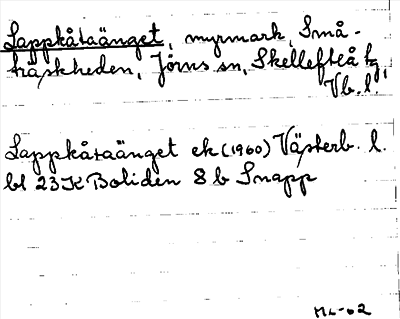 Lappkåtaänget, myrmark, Små-
träskheden, Jörns sn, Skellefteå tg,
Vb. l.
Lappkåtaänget ek (1960) Västerb. l.
bl 23K Boliden 8 b Snapp
ML-62